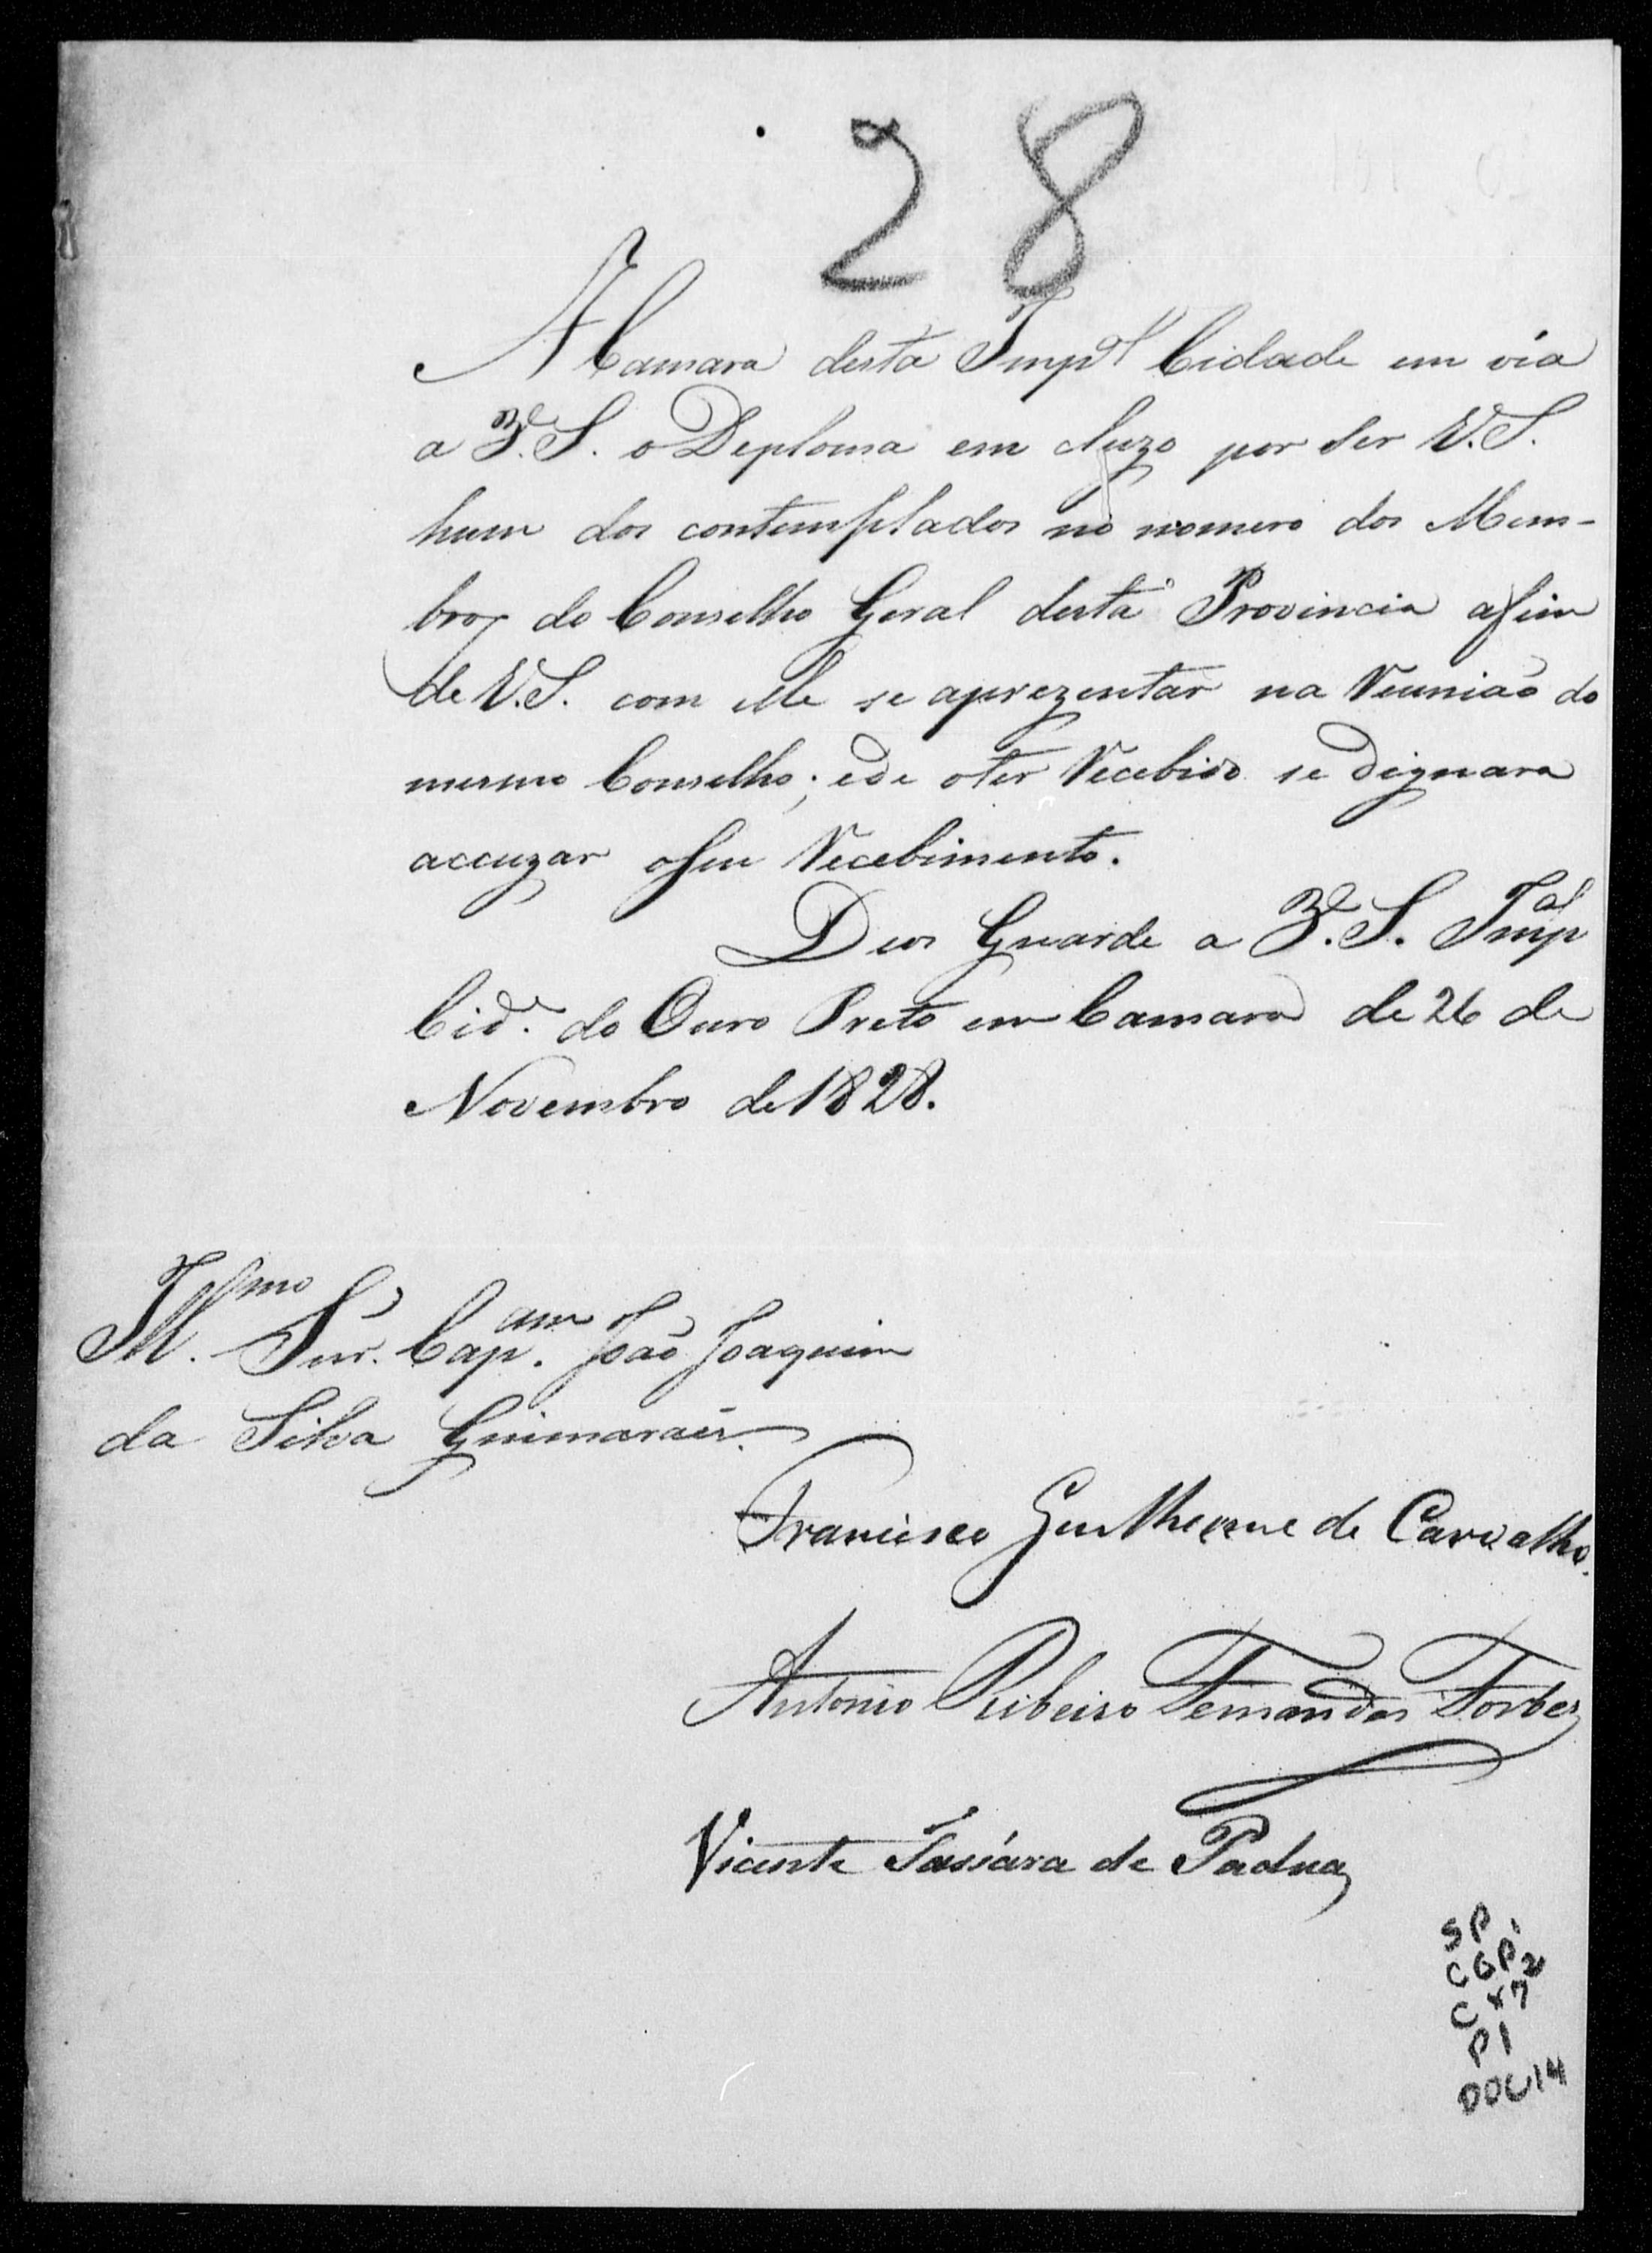 28
A Camara desta Imp.al Cidade em via
a V.S. o Deploma em cluzo por ser V.S.
hum dos contemplados no nomero dos Mem-
bros do Conselho Geral desta Provincia afim
de V.S. com elle se aprezentar na Reunião do
mesmo Conselho; ede oter Recebido se dignara
accuzar oseu Recebimento.
Deos Guarde a V.S. Imp.al
Cid.e do Ouro Preto em Camara de 26 de
Novembro de 1828.
Ill.mo Snr. Cap.am João Joaquim
da Silva Guimaraẽs
Francisco Guilherme de Carvalho.
Antonio Ribeiro Fernandes Forbes
Vicente Tassára de Padua
SP
CGP2
CX7
P1
DOC14